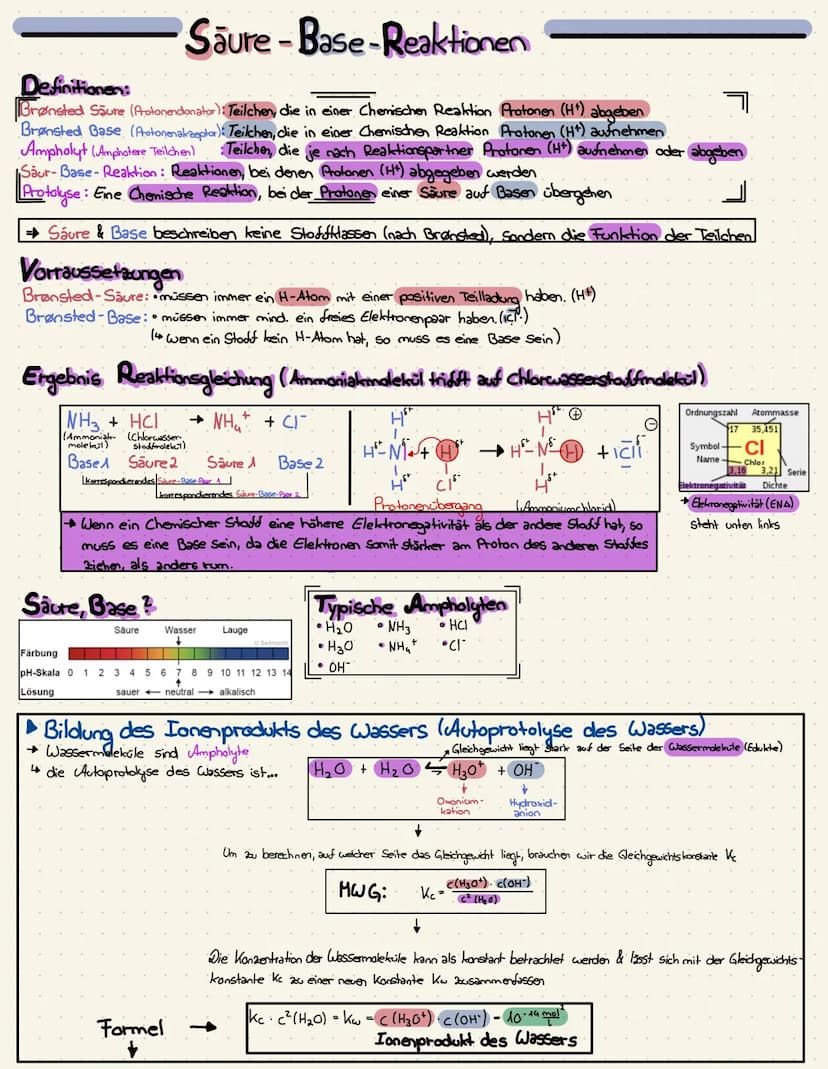 Säure-Base-Reaktionen
Definitionen:
Brønsted Säure (Protonendonator): Teilchen, die in einer Chemischen Reaktion Protonen (H⁺) abgeben
Brønsted Base (Protonenakzeptor): Teilchen, die in einer Chemischen Reaktion Protonen (H⁺) aufnehmen
Ampholyt (Amphotere Teilchen) : Teilchen, die je nach Reaktionspartner Protonen (H⁺) aufnehmen oder abgeben
Säur-Base-Reaktion: Reaktionen, bei denen Protonen (H⁺) abgegeben werden
Protolyse: Eine Chemische Reaktion, bei der Protonen einer Säure auf Basen übergehen
⇒ Säure & Base beschreiben keine Stoffklassen (nach Brønsted), sondern die Funktion der Teilchen
Vorraussetzungen
Brønsted-Säure: • müssen immer ein H-Atom mit einer positiven Teilladung haben. (H⁺)
Brønsted-Base: • müssen immer mind. ein freies Elektronenpaar haben. (ICl⁻)
(↳ wenn ein Stoff kein H-Atom hat, so muss es eine Base sein)
Ergebnis Reaktionsgleichung (Ammoniakmolekül trifft auf Chlorwasserstoffmolekül)
NH₃ + HCl → NH₄⁺ + Cl⁻
(Ammoniak-molekül) (Chlorwasser-stoffmolekül)
Base1 Säure2 Säure 1 Base 2
korrespondierendes Säure-Base-Paar 1
korrespondierendes Säure-Base-Paar 2
H^δ+ H^δ+ ⊕ ⊖
H^δ+-N| + H^δ+ → H^δ+-N^δ--H + |Cl|^δ-
H^δ+ Cl^δ- H^δ+
Protonenübergang (Ammoniumchlorid)
Ordnungszahl Atommasse
17 35,451
Symbol Cl
Name Chlor
3,16 3,21 Serie
Elektronegativität Dichte
→ Elektronegativität (EN∆)
steht unten links
→ Wenn ein Chemischer Stoff eine höhere Elektronegativität als der andere Stoff hat, so
muss es eine Base sein, da die Elektronen somit stärker am Proton des anderen Stoffes
ziehen, als anders rum.
Säure, Base?
Säure Wasser Lauge
Färbung
pH-Skala 0 1 2 3 4 5 6 7 8 9 10 11 12 13 14
Lösung sauer ← neutral → alkalisch
Typische Ampholyten
• H₂O • NH₃ • HCl
• H₃O • NH₄⁺ • Cl⁻
• OH⁻
▶ Bildung des Ionenprodukts des Wassers (Autoprotolyse des Wassers)
→ Wassermoleküle sind Ampholyte
Gleichgewicht liegt stark auf der Seite der Wassermoleküle (Edukte)
↳ die Autoprotolyse des Wassers ist...
H₂O + H₂O ⇌ H₃O⁺ + OH⁻
Oxonium-kation Hydroxid-anion
Um zu berechnen, auf welcher Seite das Gleichgewicht liegt, brauchen wir die Gleichgewichtskonstante Kc
MWG: Kc = c(H₃O⁺) · c(OH⁻) / c²(H₂O)
Die Konzentration der Wassermoleküle kann als konstant betrachtet werden & lässt sich mit der Gleichgewichts-
konstante Kc zu einer neuen Konstante Kw zusammenfassen
Formel → Kc · c²(H₂O) = Kw = c(H₃O⁺) · c(OH⁻) =
Ionenprodukt des Wassers